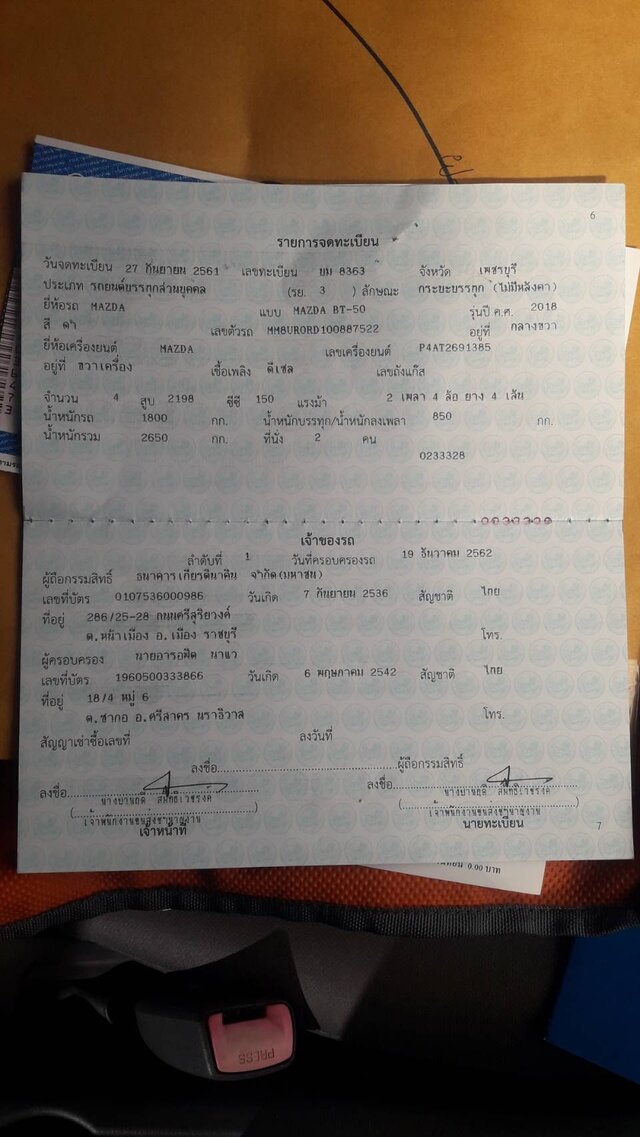 6
รายการจดทะเบียน
วันจดทะเบียน 27 กันยายน 2561 เลขทะเบียน บม 8363 จังหวัด เพชรบุรี
ประเภท รถยนต์บรรทุกส่วนบุคคล (รย. 3 ) ลักษณะ กระบะบรรทุก (ไม่มีหลังคา)
ยี่ห้อรถ MAZDA แบบ MAZDA BT-50 รุ่นปี ค.ศ. 2018
สี ดำ เลขตัวรถ MM8UR0RD100887522 อยู่ที่ กลางขวา
ยี่ห้อเครื่องยนต์ MAZDA เลขเครื่องยนต์ P4AT2691385
อยู่ที่ ขวาเครื่อง เชื้อเพลิง ดีเซล เลขถังแก๊ส
จำนวน 4 สูบ 2198 ซีซี 150 แรงม้า 2 เพลา 4 ล้อ ยาง 4 เส้น
น้ำหนักรถ 1800 กก. น้ำหนักบรรทุก/น้ำหนักลงเพลา 850 กก.
น้ำหนักรวม 2650 กก. ที่นั่ง 2 คน
0233328
เจ้าของรถ
ลำดับที่ 1 วันที่ครอบครองรถ 19 ธันวาคม 2562
ผู้ถือกรรมสิทธิ์ ธนาคารเกียรตินาคิน จำกัด(มหาชน)
เลขที่บัตร 0107536000986 วันเกิด 7 กันยายน 2536 สัญชาติ ไทย
ที่อยู่ 286/25-28 ถนนศรีสุริยวงค์
ต.หน้าเมือง อ.เมือง ราชบุรี โทร.
ผู้ครอบครอง นายอารอฟิต นาแว
เลขที่บัตร 1960500333866 วันเกิด 6 พฤษภาคม 2542 สัญชาติ ไทย
ที่อยู่ 18/4 หมู่ 6
ต.ซากอ อ.ศรีสาคร นราธิวาส โทร.
สัญญาเช่าซื้อเลขที่ ลงวันที่
ลงชื่อ ผู้ถือกรรมสิทธิ์
ลงชื่อ ลงชื่อ
(เจ้าพนักงานขนส่งชำนาญงาน) (เจ้าพนักงานขนส่งชำนาญงาน)
เจ้าหน้าที่ นายทะเบียน
7
0.00 บาท
PRESS